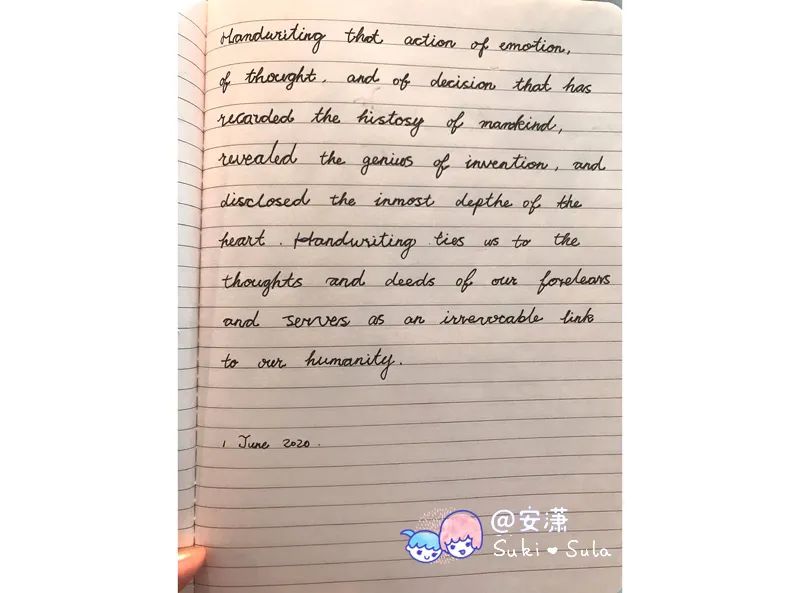 Handwriting that action of emotion,
of thought, and of decision that has
recarded the history of mankind,
revealed the genius of invention, and
disclosed the inmost depthe of the
heart. Handwriting ties us to the
thoughts and deeds of our forelears
and serves as an irrevocable link
to our humanity.
1 June 2020.
@安潇
Suki ❤ Sula